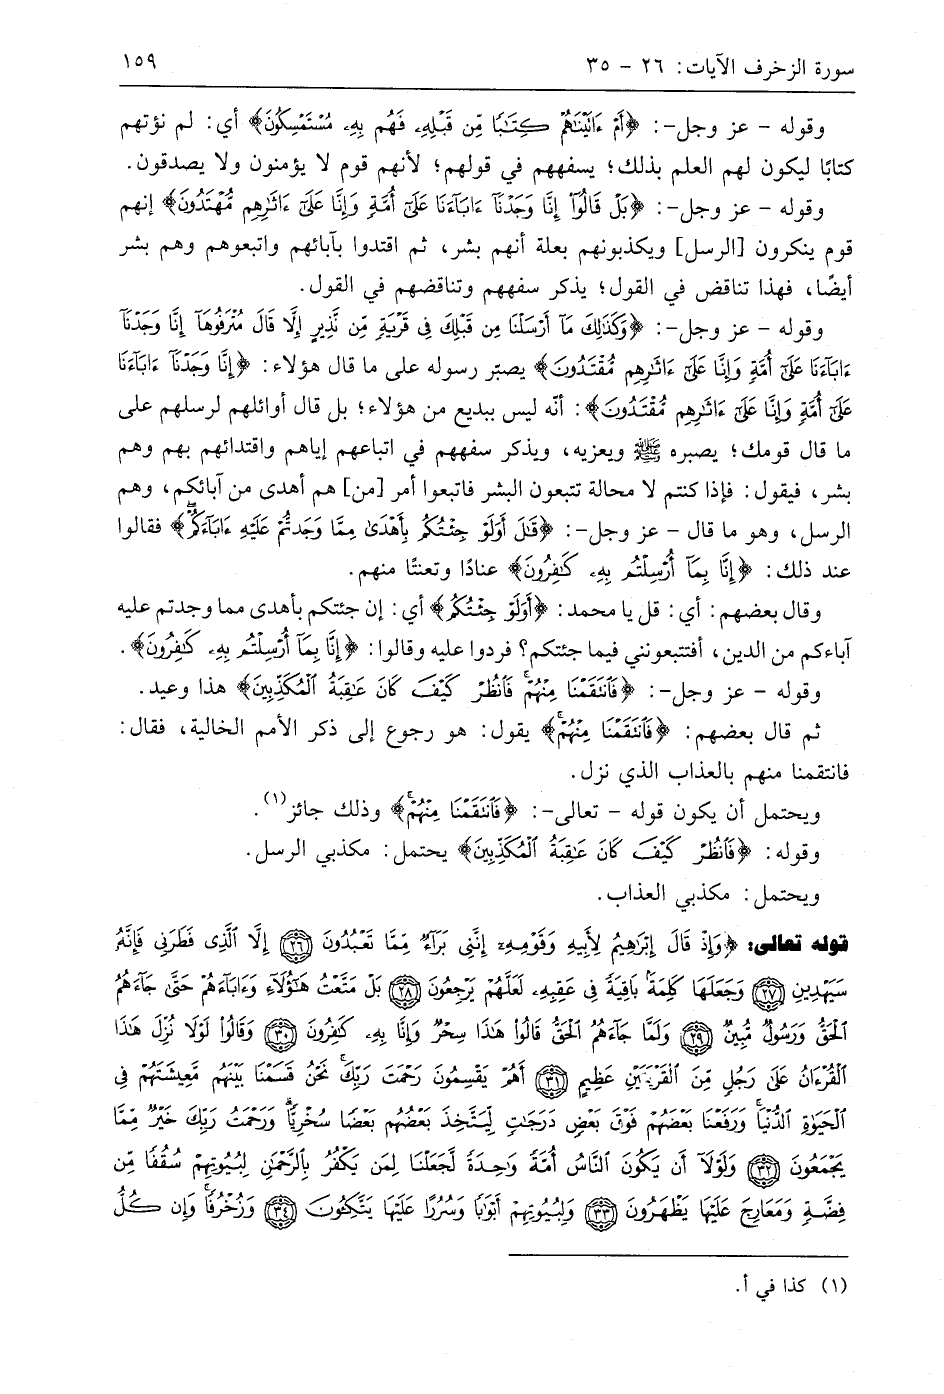 سورة الزخرف الآيات: ٢٦ - ٣٥ ١٥٩
وقوله - عز وجل-: ﴿أَمْ ءَاتَيْنَٰهُمْ كِتَٰبًا مِّن قَبْلِهِۦ فَهُم بِهِۦ مُسْتَمْسِكُونَ﴾ أي: لم نؤتهم
كتابًا ليكون لهم العلم بذلك؛ يسفههم في قولهم؛ لأنهم قوم لا يؤمنون ولا يصدقون.
وقوله - عز وجل-: ﴿بَلْ قَالُوٓا۟ إِنَّا وَجَدْنَآ ءَابَآءَنَا عَلَىٰٓ أُمَّةٍ وَإِنَّا عَلَىٰٓ ءَاثَٰرِهِم مُّهْتَدُونَ﴾ إنهم
قوم ينكرون [الرسل] ويكذبونهم بعلة أنهم بشر، ثم اقتدوا بآبائهم واتبعوهم وهم بشر
أيضًا، فهذا تناقض في القول؛ يذكر سفههم وتناقضهم في القول.
وقوله - عز وجل-: ﴿وَكَذَٰلِكَ مَآ أَرْسَلْنَا مِن قَبْلِكَ فِى قَرْيَةٍ مِّن نَّذِيرٍ إِلَّا قَالَ مُتْرَفُوهَآ إِنَّا وَجَدْنَآ
ءَابَآءَنَا عَلَىٰٓ أُمَّةٍ وَإِنَّا عَلَىٰٓ ءَاثَٰرِهِم مُّقْتَدُونَ﴾ يصبّر رسوله على ما قال هؤلاء: ﴿إِنَّا وَجَدْنَآ ءَابَآءَنَا
عَلَىٰٓ أُمَّةٍ وَإِنَّا عَلَىٰٓ ءَاثَٰرِهِم مُّقْتَدُونَ﴾: أنه ليس ببديع من هؤلاء؛ بل قال أوائلهم لرسلهم على
ما قال قومك؛ يصبره ﷺ ويعزيه، ويذكر سفههم في اتباعهم إياهم واقتدائهم بهم وهم
بشر، فيقول: فإذا كنتم لا محالة تتبعون البشر فاتبعوا أمر [من] هم أهدى من آبائكم، وهم
الرسل، وهو ما قال - عز وجل-: ﴿قَٰلَ أَوَلَوْ جِئْتُكُم بِأَهْدَىٰ مِمَّا وَجَدتُّمْ عَلَيْهِ ءَابَآءَكُمْ﴾ فقالوا
عند ذلك: ﴿إِنَّا بِمَآ أُرْسِلْتُم بِهِۦ كَٰفِرُونَ﴾ عنادًا وتعنتًا منهم.
وقال بعضهم: أي: قل يا محمد: ﴿أَوَلَوْ جِئْتُكُم﴾ أي: إن جئتكم بأهدى مما وجدتم عليه
آباءكم من الدين، أفتتبعونني فيما جئتكم؟ فردوا عليه وقالوا: ﴿إِنَّا بِمَآ أُرْسِلْتُم بِهِۦ كَٰفِرُونَ﴾.
وقوله - عز وجل-: ﴿فَٱنتَقَمْنَا مِنْهُمْ فَٱنظُرْ كَيْفَ كَانَ عَٰقِبَةُ ٱلْمُكَذِّبِينَ﴾ هذا وعيد.
ثم قال بعضهم: ﴿فَٱنتَقَمْنَا مِنْهُمْ﴾ يقول: هو رجوع إلى ذكر الأمم الخالية، فقال:
فانتقمنا منهم بالعذاب الذي نزل.
ويحتمل أن يكون قوله - تعالى-: ﴿فَٱنتَقَمْنَا مِنْهُمْ﴾ وذلك جائز(١).
وقوله: ﴿فَٱنظُرْ كَيْفَ كَانَ عَٰقِبَةُ ٱلْمُكَذِّبِينَ﴾ يحتمل: مكذبي الرسل.
ويحتمل: مكذبي العذاب.
قوله تعالى: ﴿وَإِذْ قَالَ إِبْرَٰهِيمُ لِأَبِيهِ وَقَوْمِهِۦٓ إِنَّنِى بَرَآءٌ مِّمَّا تَعْبُدُونَ ٢٦ إِلَّا ٱلَّذِى فَطَرَنِى فَإِنَّهُۥ
سَيَهْدِينِ ٢٧ وَجَعَلَهَا كَلِمَةًۢ بَاقِيَةً فِى عَقِبِهِۦ لَعَلَّهُمْ يَرْجِعُونَ ٢٨ بَلْ مَتَّعْتُ هَٰٓؤُلَآءِ وَءَابَآءَهُمْ حَتَّىٰ جَآءَهُمُ
ٱلْحَقُّ وَرَسُولٌ مُّبِينٌ ٢٩ وَلَمَّا جَآءَهُمُ ٱلْحَقُّ قَالُوا۟ هَٰذَا سِحْرٌ وَإِنَّا بِهِۦ كَٰفِرُونَ ٣٠ وَقَالُوا۟ لَوْلَا نُزِّلَ هَٰذَا
ٱلْقُرْءَانُ عَلَىٰ رَجُلٍ مِّنَ ٱلْقَرْيَتَيْنِ عَظِيمٍ ٣١ أَهُمْ يَقْسِمُونَ رَحْمَتَ رَبِّكَ نَحْنُ قَسَمْنَا بَيْنَهُم مَّعِيشَتَهُمْ فِى
ٱلْحَيَوٰةِ ٱلدُّنْيَا وَرَفَعْنَا بَعْضَهُمْ فَوْقَ بَعْضٍ دَرَجَٰتٍ لِّيَتَّخِذَ بَعْضُهُم بَعْضًا سُخْرِيًّا وَرَحْمَتُ رَبِّكَ خَيْرٌ مِّمَّا
يَجْمَعُونَ ٣٢ وَلَوْلَآ أَن يَكُونَ ٱلنَّاسُ أُمَّةً وَٰحِدَةً لَّجَعَلْنَا لِمَن يَكْفُرُ بِٱلرَّحْمَٰنِ لِبُيُوتِهِمْ سُقُفًا مِّن
فِضَّةٍ وَمَعَارِجَ عَلَيْهَا يَظْهَرُونَ ٣٣ وَلِبُيُوتِهِمْ أَبْوَٰبًا وَسُرُرًا عَلَيْهَا يَتَّكِـُٔونَ ٣٤ وَزُخْرُفًا وَإِن كُلُّ
(١) كذا في أ.